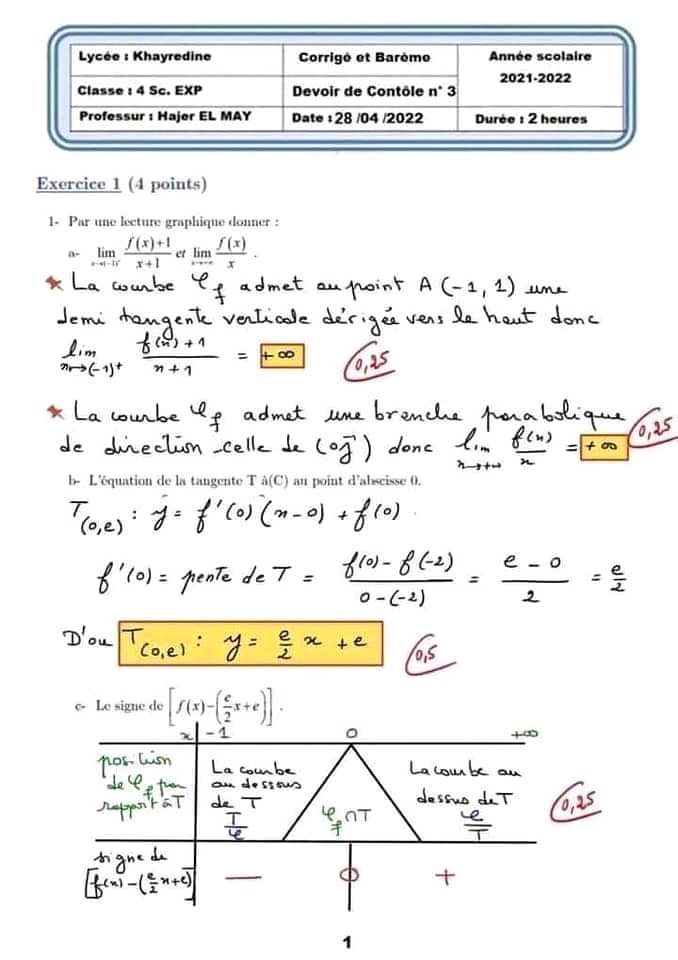 Lycée : Khayredine
Corrigé et Barème
Année scolaire
2021-2022
Classe : 4 Sc. EXP
Devoir de Contôle n° 3
Professur : Hajer EL MAY
Date : 28 /04 /2022
Durée : 2 heures
Exercice 1 (4 points)
1- Par une lecture graphique donner :
a- lim x→(-1)⁺ (f(x)+1)/(x+1) et lim x→+∞ f(x)/x .
* La courbe 𝒞f admet au point A (-1, 1) une
demi tangente verticale dérigée vers le haut donc
lim x→(-1)⁺ (f(x)+1)/(x+1) = +∞ 0,25
* La courbe 𝒞f admet une branche parabolique
de direction celle de (oj⃗) donc lim x→+∞ f(x)/x = +∞ 0,25
b- L'équation de la tangente T à(C) au point d'abscisse 0.
T(0,e) : y = f'(0) (x-0) + f(0) .
f'(0) = pente de T = (f(0) - f(-2))/(0-(-2)) = (e-0)/2 = e/2
D'ou T(0,e) : y = e/2 x + e 0,5
c- Le signe de [f(x)-(e/2 x+e)] .
x -1 0 +∞
position
de 𝒞f par
rapport à T
La courbe
au dessous
de T
T/𝒞
𝒞f∩T
La courbe au
dessus de T
𝒞/T
0,25
signe de
[f(x) - (e/2 x+e)] — 0 +
1